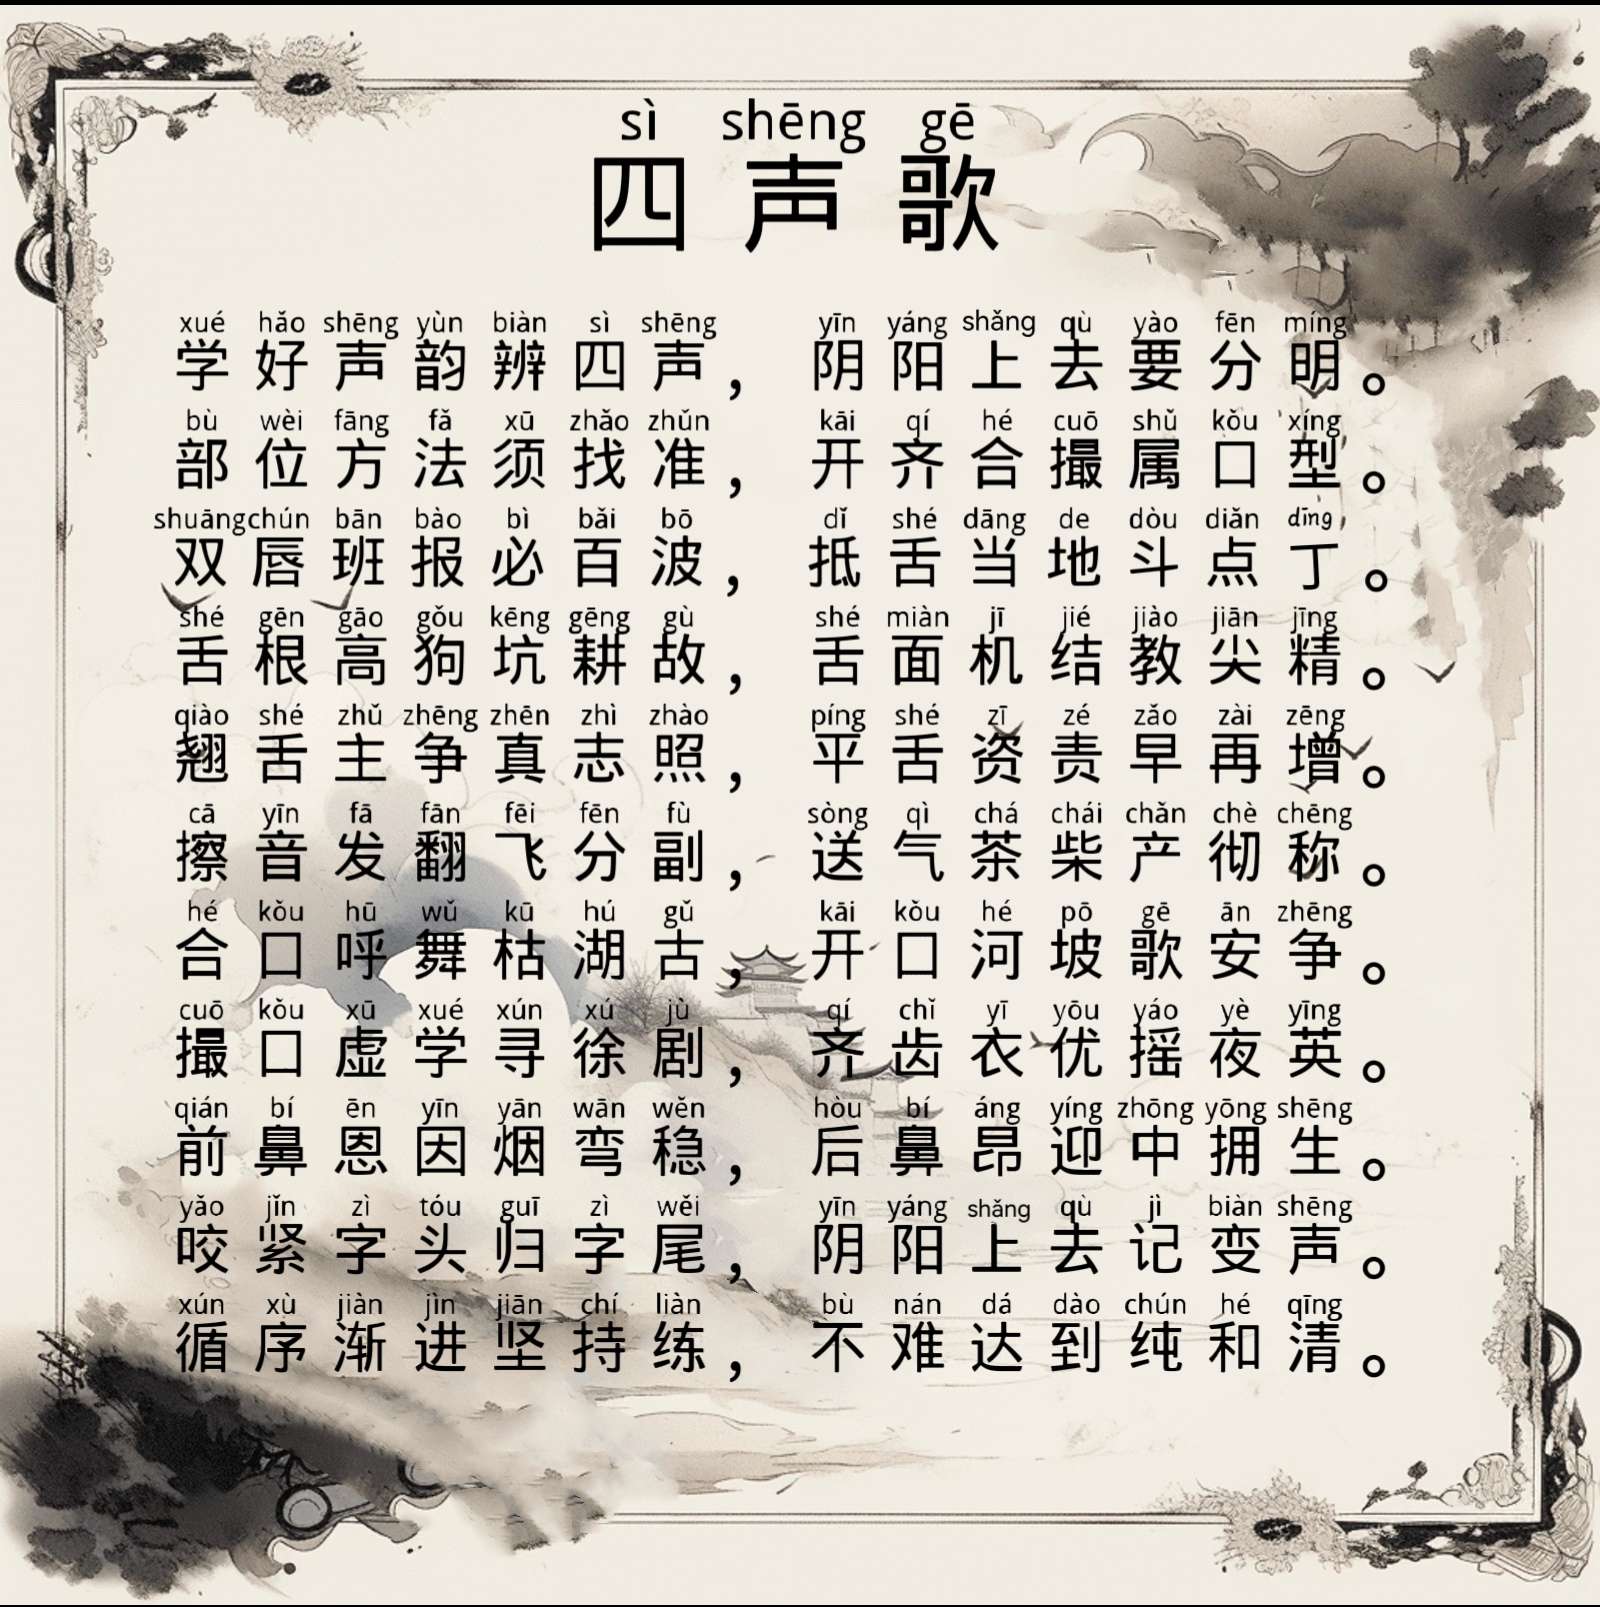 sì shēng gē
四声歌
xué hǎo shēng yùn biàn sì shēng yīn yáng shǎng qù yào fēn míng
学好声韵辨四声，阴阳上去要分明。
bù wèi fāng fǎ xū zhǎo zhǔn kāi qí hé cuō shǔ kǒu xíng
部位方法须找准，开齐合撮属口型。
shuāng chún bān bào bì bǎi bō dǐ shé dāng de dòu diǎn dīng
双唇班报必百波，抵舌当地斗点丁。
shé gēn gāo gǒu kēng gēng gù shé miàn jī jié jiào jiān jīng
舌根高狗坑耕故，舌面机结教尖精。
qiào shé zhǔ zhēng zhēn zhì zhào píng shé zī zé zǎo zài zēng
翘舌主争真志照，平舌资责早再增。
cā yīn fā fān fēi fēn fù sòng qì chá chái chǎn chè chēng
擦音发翻飞分副，送气茶柴产彻称。
hé kǒu hū wǔ kū hú gǔ kāi kǒu hé pō gē ān zhēng
合口呼舞枯湖古，开口河坡歌安争。
cuō kǒu xū xué xún xú jù qí chǐ yī yōu yáo yè yīng
撮口虚学寻徐剧，齐齿衣优摇夜英。
qián bí ēn yīn yān wān wěn hòu bí áng yíng zhōng yōng shēng
前鼻恩因烟弯稳，后鼻昂迎中拥生。
yǎo jǐn zì tóu guī zì wěi yīn yáng shǎng qù jì biàn shēng
咬紧字头归字尾，阴阳上去记变声。
xún xù jiàn jìn jiān chí liàn bù nán dá dào chún hé qīng
循序渐进坚持练，不难达到纯和清。